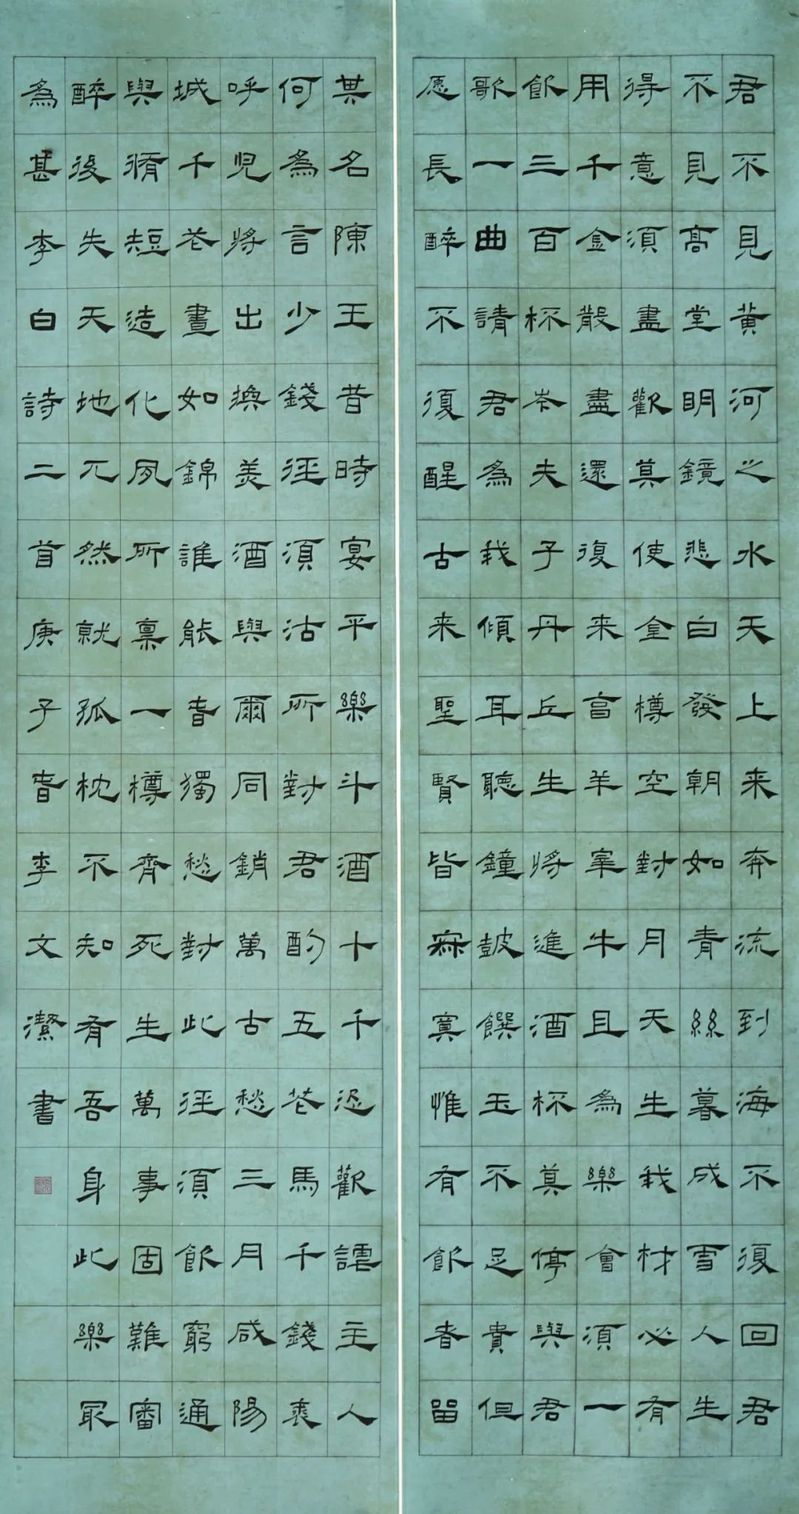 君不見黃河之水天上来奔流到海不復回君
不見高堂明鏡悲白發朝如青絲暮成雪人生
得意須盡歡莫使金樽空對月天生我材必有
用千金散盡還復来亯羊宰牛且為樂會須一
飲三百杯岑夫子丹丘生將進酒杯莫停與君
歌一曲請君為我傾耳聽鐘鼓饌玉不足貴但
愿長醉不復醒古来聖賢皆寂寞惟有飲者留
其名陳王昔時宴平樂斗酒十千恣歡謔主人
何為言少錢徑須沽所對君酌五花馬千錢裘
呼兒將出換美酒與爾同銷萬古愁三月咸陽
城千花晝如錦誰能春獨愁對此徑須飲窮通
與脩短造化夙所稟一樽齊死生萬事固難審
醉後失天地兀然就孤枕不知有吾身此樂最
為甚李白詩二首庚子春李文潔書